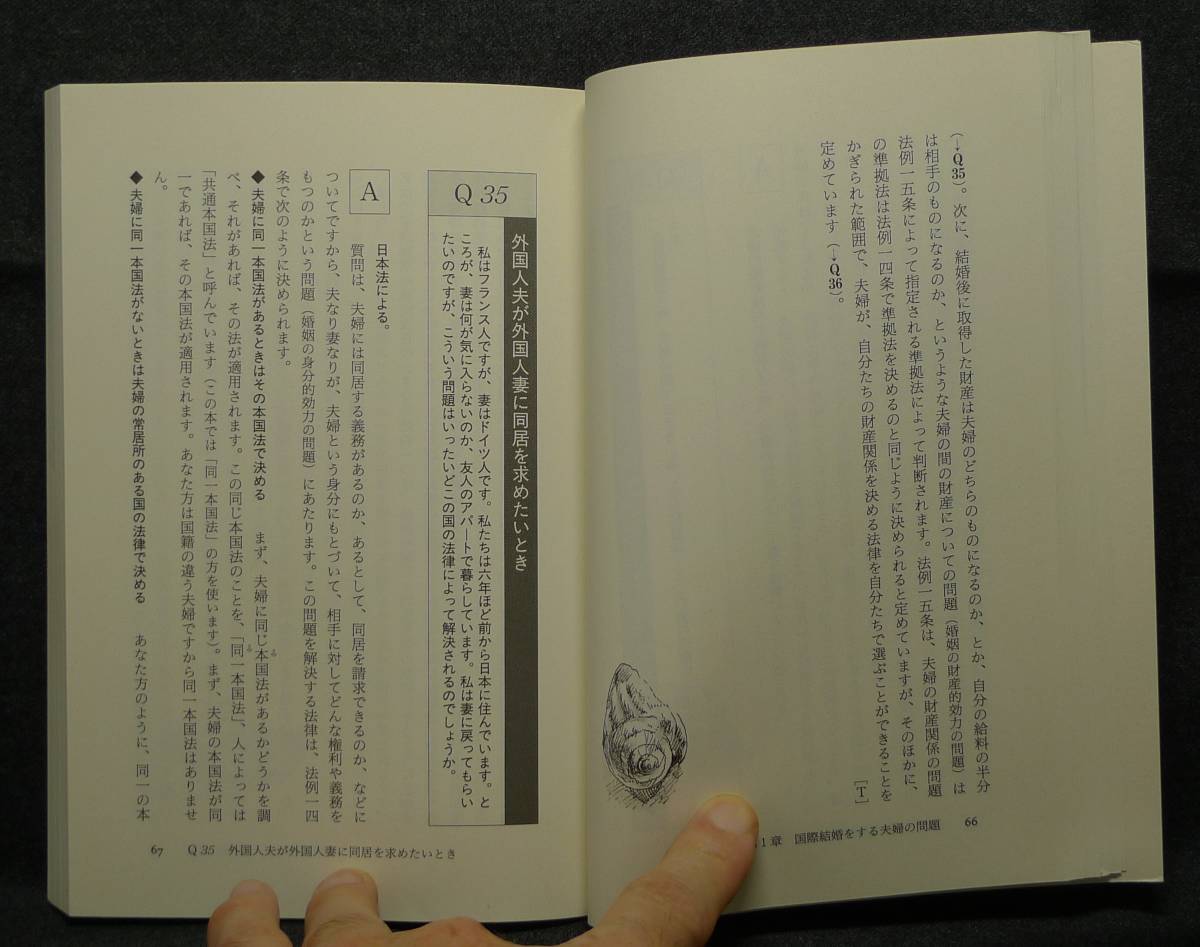 (→Q35)。次に、結婚後に取得した財産は夫婦のどちらのものになるのか、とか、自分の給料の半分
は相手のものになるのか、というような夫婦の間の財産についての問題(婚姻の財産的効力の問題)は
法例一五条によって指定される準拠法によって判断されます。法例一五条は、夫婦の財産関係の問題
の準拠法は法例一四条で準拠法を決めるのと同じように決められると定めていますが、そのほかに、
かぎられた範囲で、夫婦が、自分たちの財産関係を決める法律を自分たちで選ぶことができることを
定めています(→Q36)。
[T]
1章 国際結婚をする夫婦の問題 66
Q35
外国人夫が外国人妻に同居を求めたいとき
私はフランス人ですが、妻はドイツ人です。私たちは六年ほど前から日本に住んでいます。と
ころが、妻は何が気に入らないのか、友人のアパートで暮らしています。私は妻に戻ってもらい
たいのですが、こういう問題はいったいどこの国の法律によって解決されるのでしょうか。
A
日本法による。
質問は、夫婦には同居する義務があるのか、あるとして、同居を請求できるのか、などに
ついてですから、夫なり妻なりが、夫婦という身分にもとづいて、相手に対してどんな権利や義務を
もつのかという問題(婚姻の身分的効力の問題)にあたります。この問題を解決する法律は、法例一四
条で次のように決められます。
◆夫婦に同一本国法があるときはその本国法で決める まず、夫婦に同じ本国法があるかどうかを調
べ、それがあれば、その法が適用されます。この同じ本国法のことを、「同一本国法」、人によっては
「共通本国法」と呼んでいます(この本では「同一本国法」の方を使います)。まず、夫婦の本国法が同
一であれば、その本国法が適用されます。あなた方は国籍の違う夫婦ですから同一本国法はありませ
ん。
◆夫婦に同一本国法がないときは夫婦の常居所のある国の法律で決める あなた方のように、同一の本
67 Q35 外国人夫が外国人妻に同居を求めたいとき